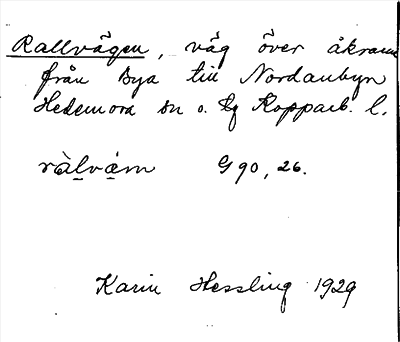 Rallvägen, väg över åkrarne
från Bya till Nordanbyn
Hedemora sn o. tg Kopparb. l.
ràlvä́m G 90, 26.
Karin Hessling 1929